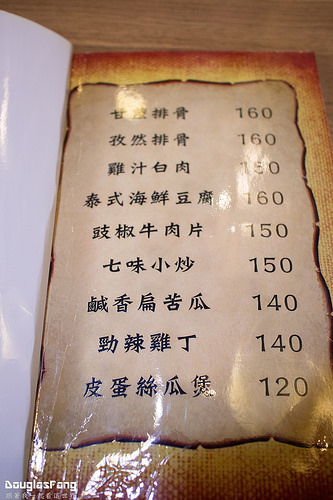 甘蔗排骨 160
孜然排骨 160
雞汁白肉 150
泰式海鮮豆腐 160
豉椒牛肉片 150
七味小炒 150
鹹香扁苦瓜 140
勁辣雞丁 140
皮蛋絲瓜煲 120
DouglasFang